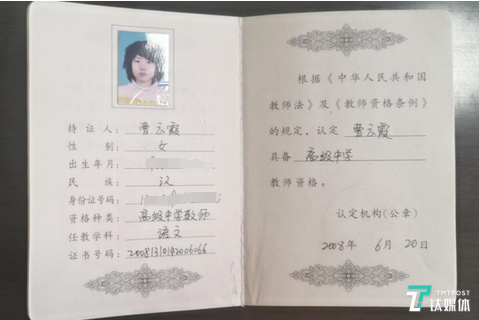 持证人：曹云霞
性别：女
出生年月：
民族：汉
身份证号码：
资格种类：高级中学教师
任教学科：语文
证书号码：20081310142006066
根据《中华人民共和国
教师法》及《教师资格条例》
的规定，认定 曹云霞
具备 高级中学
教师资格。
认定机构(公章)
2008年 6月 20日
TMTPOST
钛媒体